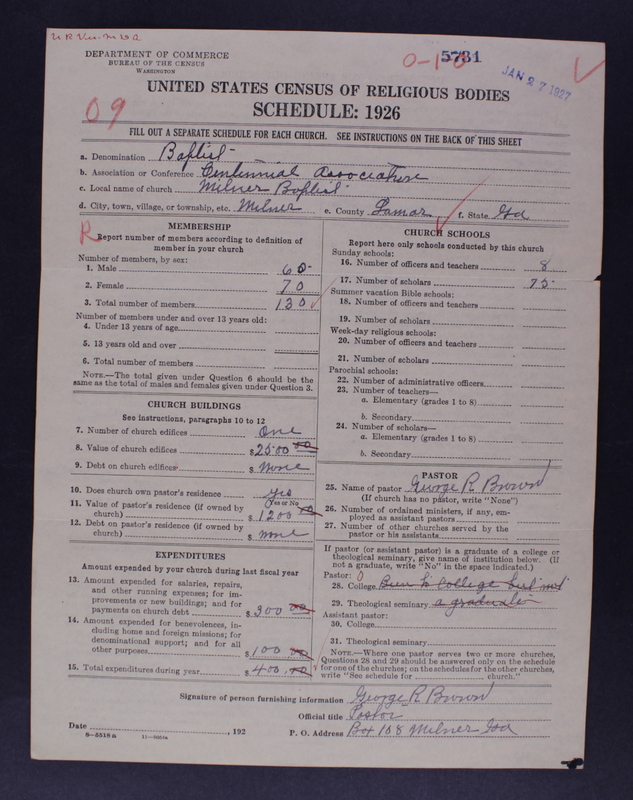 DEPARTMENT OF COMMERCE
BUREAU OF THE CENSUS
WASHINGTON
5731
JAN 27 1927
09
UNITED STATES CENSUS OF RELIGIOUS BODIES
SCHEDULE: 1926
FILL OUT A SEPARATE SCHEDULE FOR EACH CHURCH. SEE INSTRUCTIONS ON THE BACK OF THIS SHEET
a. Denomination Baptist
b. Association or Conference Centennial Association
c. Local name of church Milner Baptist
d. City, town, village, or township, etc. Milner e. County Lamar f. State Ga
R
MEMBERSHIP
Report number of members according to definition of
member in your church
Number of members, by sex:
1. Male 60
2. Female 70
3. Total number of members 130
Number of members under and over 13 years old:
4. Under 13 years of age
5. 13 years old and over
6. Total number of members
NOTE.—The total given under Question 6 should be the
same as the total of males and females given under Question 3.
CHURCH BUILDINGS
See instructions, paragraphs 10 to 12
7. Number of church edifices One
8. Value of church edifices $2500 00
9. Debt on church edifices $ None
10. Does church own pastor's residence yes
Yes or No
11. Value of pastor's residence (if owned by
church) $1200 00
12. Debt on pastor's residence (if owned by
church) $ none
EXPENDITURES
Amount expended by your church during last fiscal year
13. Amount expended for salaries, repairs,
and other running expenses; for im-
provements or new buildings; and for
payments on church debt $300 00
14. Amount expended for benevolences, in-
cluding home and foreign missions; for
denominational support; and for all
other purposes $100 00
15. Total expenditures during year $400.00
CHURCH SCHOOLS
Report here only schools conducted by this church
Sunday schools:
16. Number of officers and teachers 8
17. Number of scholars 75
Summer vacation Bible schools:
18. Number of officers and teachers
19. Number of scholars
Week-day religious schools:
20. Number of officers and teachers
21. Number of scholars
Parochial schools:
22. Number of administrative officers
23. Number of teachers—
a. Elementary (grades 1 to 8)
b. Secondary
24. Number of scholars—
a. Elementary (grades 1 to 8)
b. Secondary
PASTOR
25. Name of pastor George R Brown
(If church has no pastor, write "None")
26. Number of ordained ministers, if any, em-
ployed as assistant pastors
27. Number of other churches served by the
pastor or his assistants
If pastor (or assistant pastor) is a graduate of a college or
theological seminary, give name of institution below. (If
not a graduate, write "No" in the space indicated.)
Pastor: 0
28. College Been to College but not
29. Theological seminary a graduate
Assistant pastor:
30. College
31. Theological seminary
NOTE.—Where one pastor serves two or more churches,
Questions 28 and 29 should be answered only on the schedule
for one of the churches; on the schedules for the other churches,
write "See schedule for church."
Signature of person furnishing information George R Brown
Official title Pastor
Date , 192 P. O. Address Box 108 Milner Ga
8-5518a